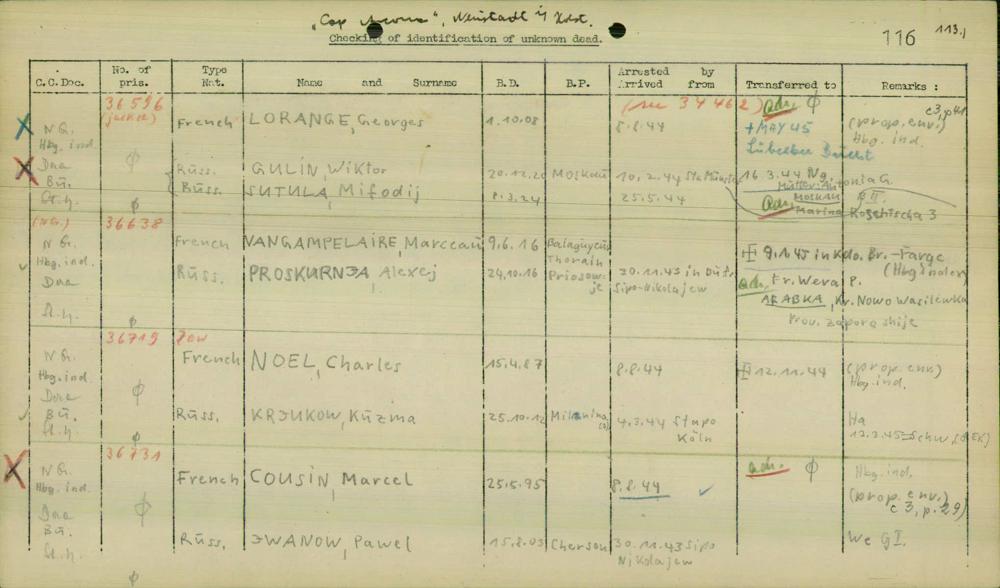 "Cap Arcona", Neustadt i/ Holst.
Checking of identification of unknown dead.
116 113.)
C.C.Doc. No. of pris. Type Nat. Name and Surname B.D. B.P. Arrested by Arrived from Transferred to Remarks :
36596 (see 34462) adr. φ c3, p41
N G. French LORANGE, Georges 1.10.08 8.8.44 +MAY 45 (prop. env.)
Hbg. ind. Lübecker Bucht Hbg. ind.
Daa φ Russ. GULIN, Wiktor 20.12.20 Moskau 10.2.44 Sta Münster 16 3.44 Ng.
Bü. Russ. SUTULA, Mifodij 8.3.24 25.5.44 Mutter: Antonia G.
St. h. φ Moskau
adr. Marina Roschtscha 3
(NG.) 36638
N G. French VANGAMPELAIRE, Marceau 9.6.16 9.1.45 in Kdo. Br.-Farge
Hbg. ind. (Hbg index)
Daa Russ. PROSKURNJA, Alexej 24.10.16 20.11.43 in
Sipo-Nikolajew adr. Fr. Wera P.
St. h. Kr. Nowo Wasilewka
Prov. Zaporoshije
36719
N G. French NOEL, Charles 15.4.87 8.8.44 12.11.44 (prop. env.)
Hbg. ind. Hbg. ind.
Daa φ
Bü. Russ. KRJUKOW, Kuzma 25.10.12 4.3.44 Stapo
St. h. φ Köln
36731
N G. French COUSIN, Marcel 25.5.95 8.8.44 adr. φ Hbg. ind.
Hbg. ind. (prop. env.)
Daa φ c 3, p. 29)
Bü. Russ. IWANOW, Pawel 15.8.03 Cherson 30.11.43 Sipo We G I.
St. h. Nikolajew
φ